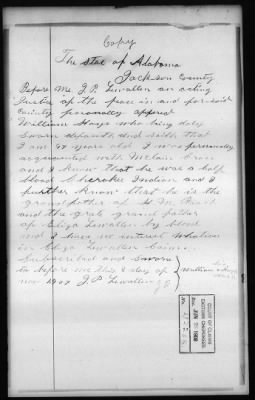 Copy
The state of Alabama
Jackson County
Before me J.P. Lewallen an acting
Justice of the peace in and for said
County personally appered
William Hays who being duly
Sworn deposeth and saith that
I am 94 years old I was personally
acquainted with McLain
and I know that he was a half
blood Cherokee Indian and I
further know that he is the
grandfather of
and the grate grand father
of Eliza Lewallen by blood
and I have no intrest whatsom
in Eliza Lewallen Claim.
Subscribed and Sworn
to before me this 8 day of
nov 1907 J.P. Lewallen J.P.
his
William x Hays
mark
COURT OF CLAIMS
EASTERN CHEROKEES
JUN
1908
No.